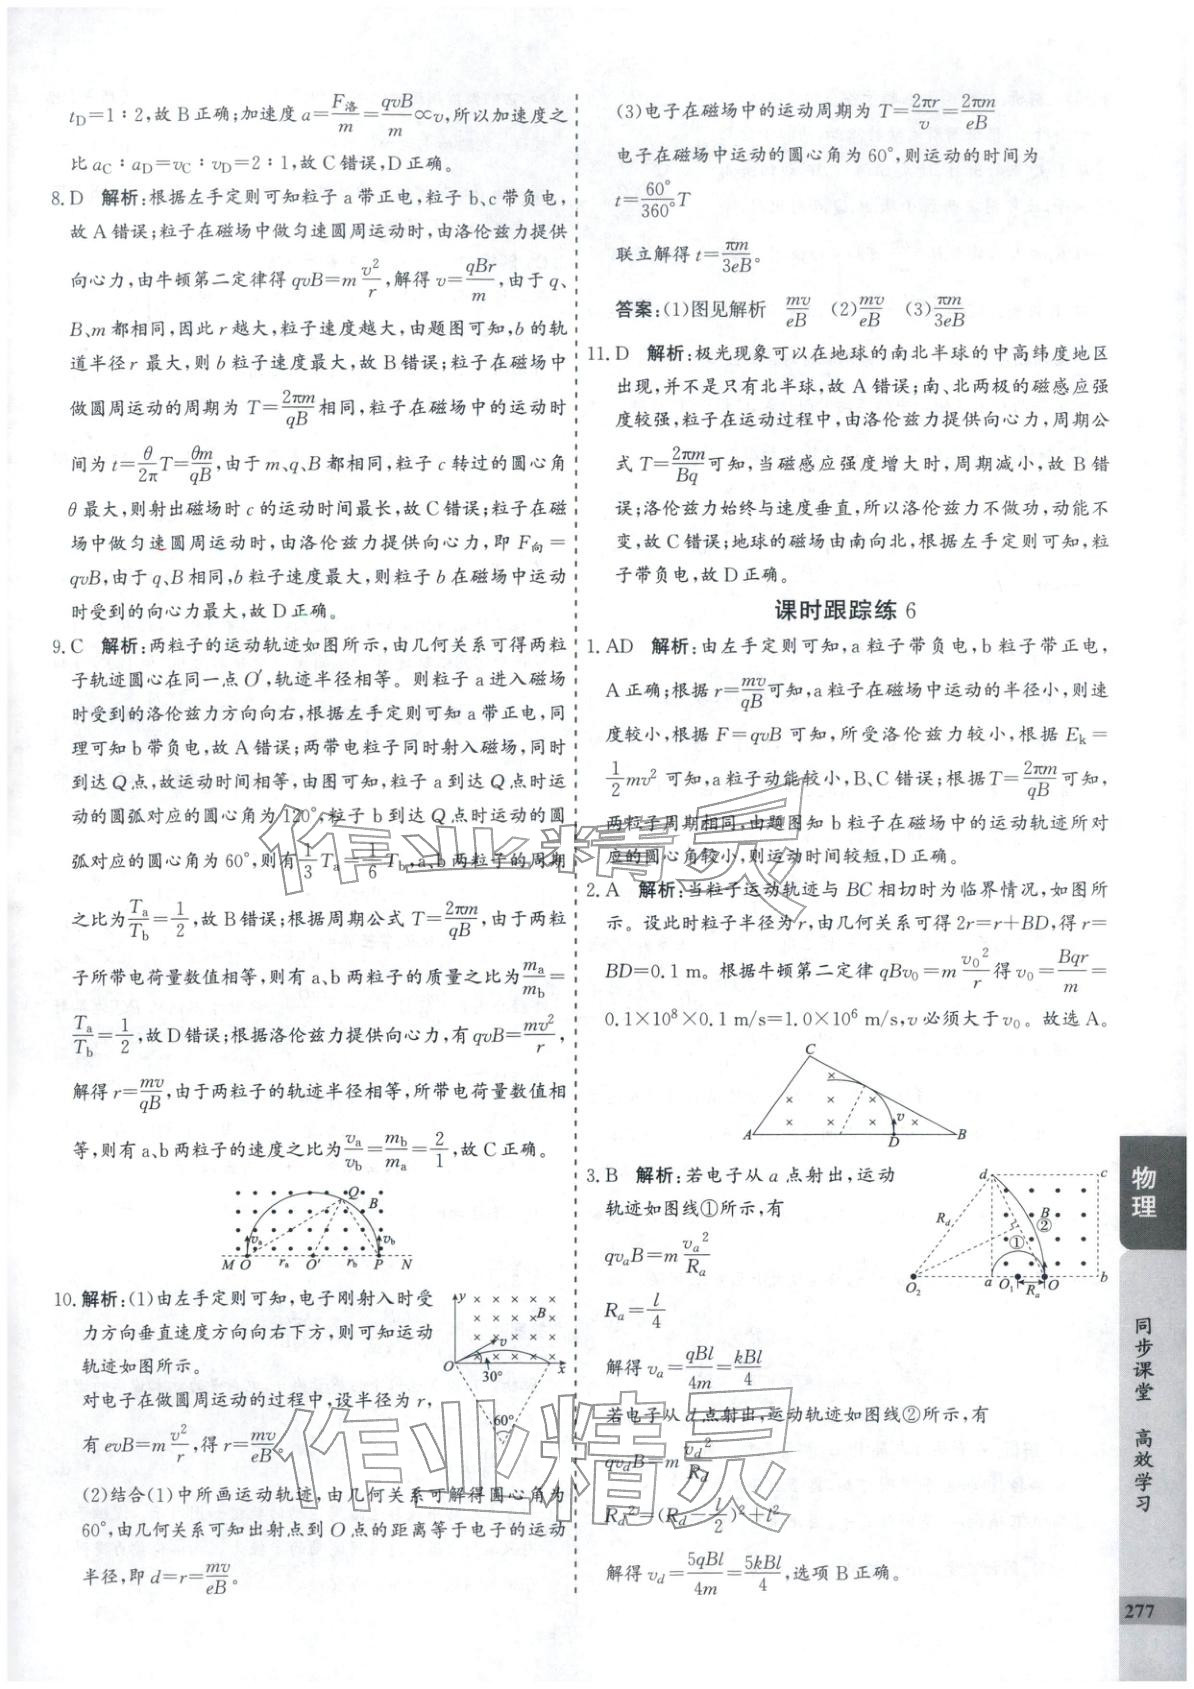 t_D=1∶2,故B正确;加速度a=F洛/m=qvB/m∝v,所以加速度之
比a_C∶a_D=v_C∶v_D=2∶1,故C错误,D正确。
8.D 解析:根据左手定则可知粒子a带正电,粒子b、c带负电,
故A错误;粒子在磁场中做匀速圆周运动时,由洛伦兹力提供
向心力,由牛顿第二定律得qvB=m v²/r,解得v=qBr/m,由于q、
B、m都相同,因此r越大,粒子速度越大,由题图可知,b的轨
道半径r最大,则b粒子速度最大,故B错误;粒子在磁场中
做圆周运动的周期为T=2πm/qB相同,粒子在磁场中的运动时
间为t=θ/2π T=θm/qB,由于m、q、B都相同,粒子c转过的圆心角
θ最大,则射出磁场时c的运动时间最长,故C错误;粒子在磁
场中做匀速圆周运动时,由洛伦兹力提供向心力,即F向=
qvB,由于q、B相同,b粒子速度最大,则粒子b在磁场中运动
时受到的向心力最大,故D正确。
9.C 解析:两粒子的运动轨迹如图所示,由几何关系可得两粒
子轨迹圆心在同一点O′,轨迹半径相等。则粒子a进入磁场
时受到的洛伦兹力方向向右,根据左手定则可知a带正电,同
理可知b带负电,故A错误;两带电粒子同时射入磁场,同时
到达Q点,故运动时间相等,由图可知,粒子a到达Q点时运
动的圆弧对应的圆心角为120°,粒子b到达Q点时运动的圆
弧对应的圆心角为60°,则有1/3 T_a=1/6 T_b,a、b两粒子的周期
之比为T_a/T_b=1/2,故B错误;根据周期公式T=2πm/qB,由于两粒
子所带电荷量数值相等,则有a、b两粒子的质量之比为m_a/m_b=
T_a/T_b=1/2,故D错误;根据洛伦兹力提供向心力,有qvB=mv²/r,
解得r=mv/qB,由于两粒子的轨迹半径相等,所带电荷量数值相
等,则有a、b两粒子的速度之比为v_a/v_b=m_b/m_a=2/1,故C正确。
Q B
v_a v_b
M O r_a O′ r_b P N
10.解析:(1)由左手定则可知,电子刚射入时受
力方向垂直速度方向向右下方,则可知运动
轨迹如图所示。
对电子在做圆周运动的过程中,设半径为r,
有evB=m v²/r,得r=mv/eB。
y B v O 30° x 60°
(2)结合(1)中所画运动轨迹,由几何关系可解得圆心角为
60°,由几何关系可知出射点到O点的距离等于电子的运动
半径,即d=r=mv/eB。
(3)电子在磁场中的运动周期为T=2πr/v=2πm/eB
电子在磁场中运动的圆心角为60°,则运动的时间为
t=60°/360° T
联立解得t=πm/3eB。
答案:(1)图见解析 mv/eB (2)mv/eB (3)πm/3eB
11.D 解析:极光现象可以在地球的南北半球的中高纬度地区
出现,并不是只有北半球,故A错误;南、北两极的磁感应强
度较强,粒子在运动过程中,由洛伦兹力提供向心力,周期公
式T=2πm/Bq可知,当磁感应强度增大时,周期减小,故B错
误;洛伦兹力始终与速度垂直,所以洛伦兹力不做功,动能不
变,故C错误;地球的磁场由南向北,根据左手定则可知,粒
子带负电,故D正确。
课时跟踪练6
1.AD 解析:由左手定则可知,a粒子带负电,b粒子带正电,
A正确;根据r=mv/qB可知,a粒子在磁场中运动的半径小,则速
度较小,根据F=qvB可知,所受洛伦兹力较小,根据E_k=
1/2 mv²可知,a粒子动能较小,B、C错误;根据T=2πm/qB可知,
两粒子周期相同,由题图知b粒子在磁场中的运动轨迹所对
应的圆心角较小,则运动时间较短,D正确。
2.A 解析:当粒子运动轨迹与BC相切时为临界情况,如图所
示。设此时粒子半径为r,由几何关系可得2r=r+BD,得r=
BD=0.1 m。根据牛顿第二定律qBv₀=m v₀²/r得v₀=Bqr/m=
0.1×10⁸×0.1 m/s=1.0×10⁶ m/s,v必须大于v₀。故选A。
C
v
A D B
3.B 解析:若电子从a点射出,运动
轨迹如图线①所示,有
qv_aB=m v_a²/R_a
R_a=l/4
解得v_a=qBl/4m=kBl/4
d c
R_d B ② ①
O₂ a O₁ R_a O b
若电子从d点射出,运动轨迹如图线②所示,有
qv_dB=m v_d²/R_d
R_d²=(R_d−l/2)²+l²
解得v_d=5qBl/4m=5kBl/4,选项B正确。
物理
同步课堂 高效学习
277
作业精灵
作业精灵